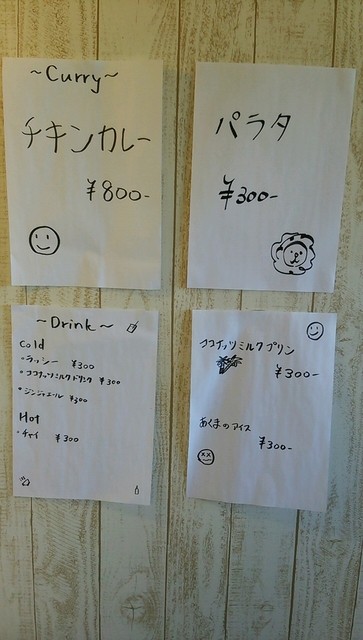 ~Curry~
チキンカレー
¥800-
パラタ
¥300-
~Drink~
Cold
・ラッシー ¥300
・ココナッツミルクドリンク ¥300
・ジンジャエール ¥300
Hot
・チャイ ¥300
ココナッツミルクプリン
¥300-
あくまのアイス
¥300-